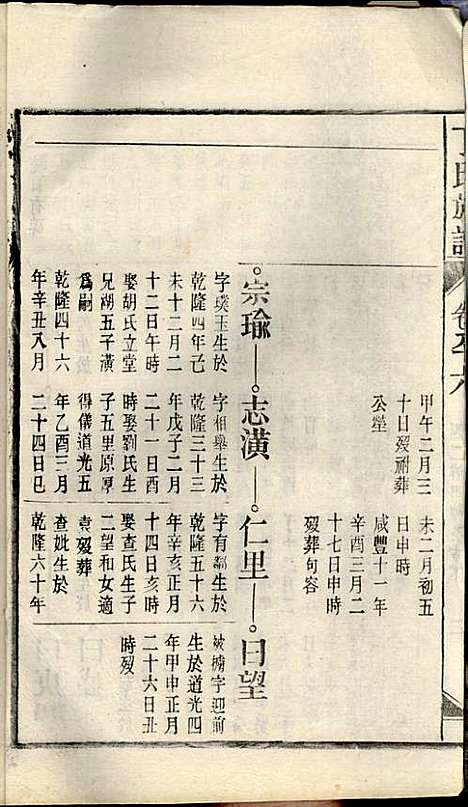 丁氏族譜
卷之六
甲午二月三
十日歿祔葬
公塋
未二月初五
日申時
咸豐十一年
辛酉三月二
十七日申時
歿葬句容
宗瑜
志潢
仁里
日望
字璞玉生於
乾隆四年己
未十二月二
十二日午時
娶胡氏立堂
兄湖五子潢
爲嗣
乾隆四十六
年辛丑八月
字相舉生於
乾隆三十三
年戊子二月
二十一日酉
時娶劉氏生
子五里原厚
得儀道光五
年乙酉三月
二十四日巳
字有鄰生於
乾隆五十六
年辛亥正月
十四日亥時
娶查氏生子
二望和女適
袁歿葬
查妣生於
乾隆六十年
字迎前
生於道光四
年甲申正月
二十六日丑
時歿